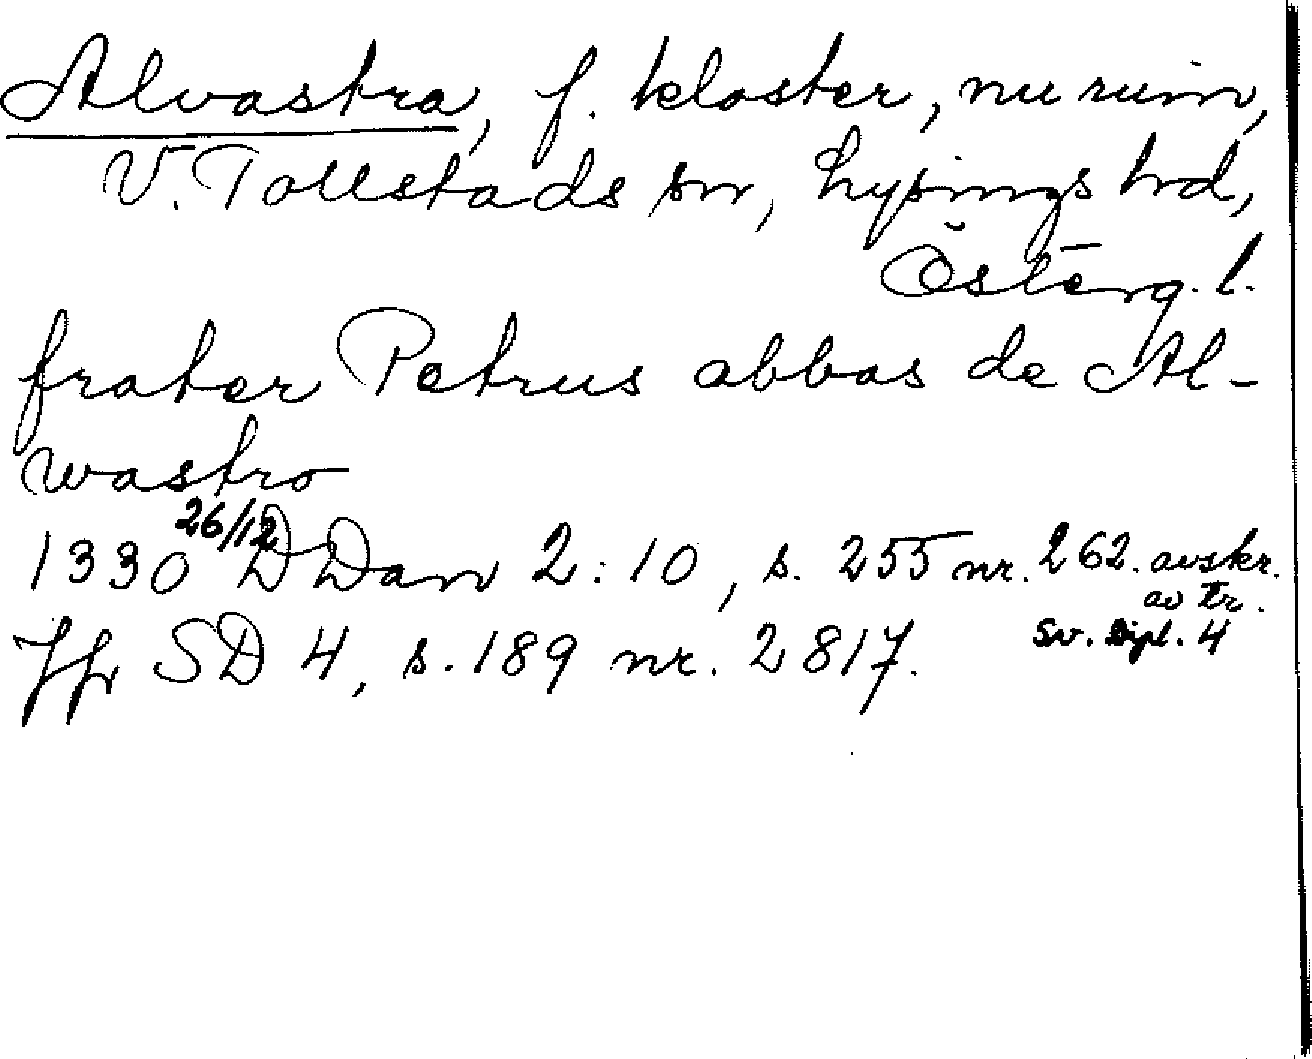 Alvastra, f. kloster, nu ruin,
V. Tollstads sn, Lysings hd,
Österg. l.
frater Petrus abbas de Al-
wastro
1330 26/12 DDan 2:10, s. 255 nr. 262. avskr.
av tr.
Sv. Dipl. 4
Jfr SD 4, s. 189 nr. 2817.